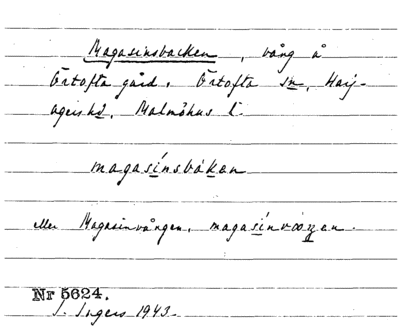 Magasinsbacken, vång å
Örtofta gård, Örtofta sn, Harj-
agers hd, Malmöhus l.
magasínsbákan
eller Magasinvången, magasínvåŋen.
Nr 5624.
I. Ingers 1943.